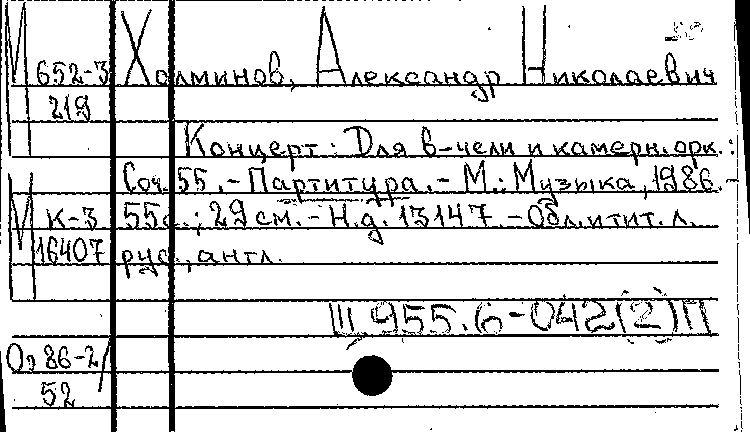 М 652-3 Холминов, Александр Николаевич
219
Концерт: Для в-чели и камерн. орк.:
Соч. 55. - Партитура. - М.: Музыка, 1986. -
М К-3 55с.; 29 см. - Н.д. 13147. - Обл. и тит. л.
16407 рус., англ.
Ш 955.6-042(2)П
Оэ 86-2/
52